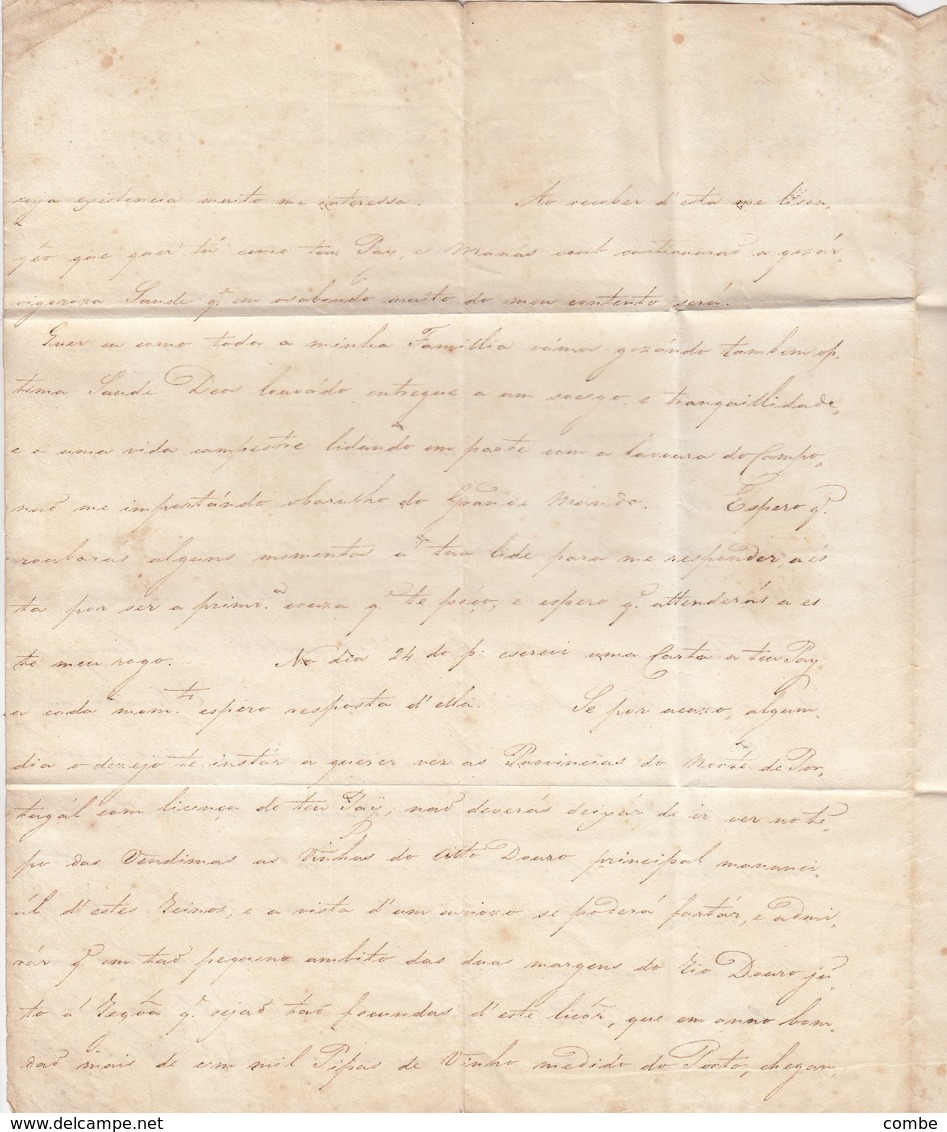 cuja existencia muito me interessa. Ao receber d'esta me lison,
geo que quer tú como teu Pay, e Manas continuarao a gozár
vigoroza Saude q. em o sabendo muito do meu contento será.
Quer eu como toda a minha Famillia vâmos gozándo tambem op,
tima Saude Deos louvádo entregue a um socego, e tranquillidade,
e a uma vida campestre lidando em parte com a lavoura do Campo,
naõ me importándo obarulho do Grande Mundo. Espero q.
roubaras alguns momentos á tua lide para me responder, a és
ta por ser a primr.ª couza q. te péço, e espero q. attenderás a es
te meu rogo. No dia 24 do p: escrevi uma Carta a teu Pay,
e cada mom.to espero resposta d'ella. Se por acazo, algum,
dia o dezejo te instár a querer ver as Provincias do Norte de Por,
tugál com licença de teu Paÿ; naõ deverás deixár de ir ver no te,
po das Vendimas as Vinhas do Alto Douro principal mananci,
ál d'estes Reinos, e a vista d'um curiozo se poderá fartár, e admi,
rár q. em taõ pequeno ambito das duas margens do Rio Douro ju,
to á Regôa q. sejaõ taõ fecundas d'este licôr, que em anno bom,
daõ mais de cem mil Pipas de Vinho medido do Porto, chegan,
www.delcampe.net
combe